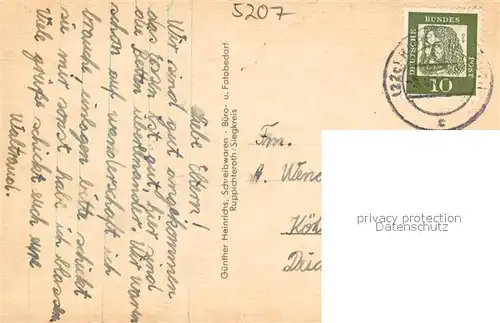 5207
Liebe Eltern!
Wir sind gut angekommen
das Essen ist gut, hier sind
die Betten übereinander. Wir waren
schon auf wanderschaft ich
brauche einlagen bitte schickt
sie mir sonst habe ich Blasen
Viele grüße schickt euch eure
Waltraud.
Günther Heinrichs, Schreibwaren - Büro- u. Fotobedarf
Ruppichteroth/Siegkreis
DEUTSCHE BUNDES POST
10
(22c)
c
Fm.
A. Wenc
Köl
privacy protection
AnsichtskartenVersand.com